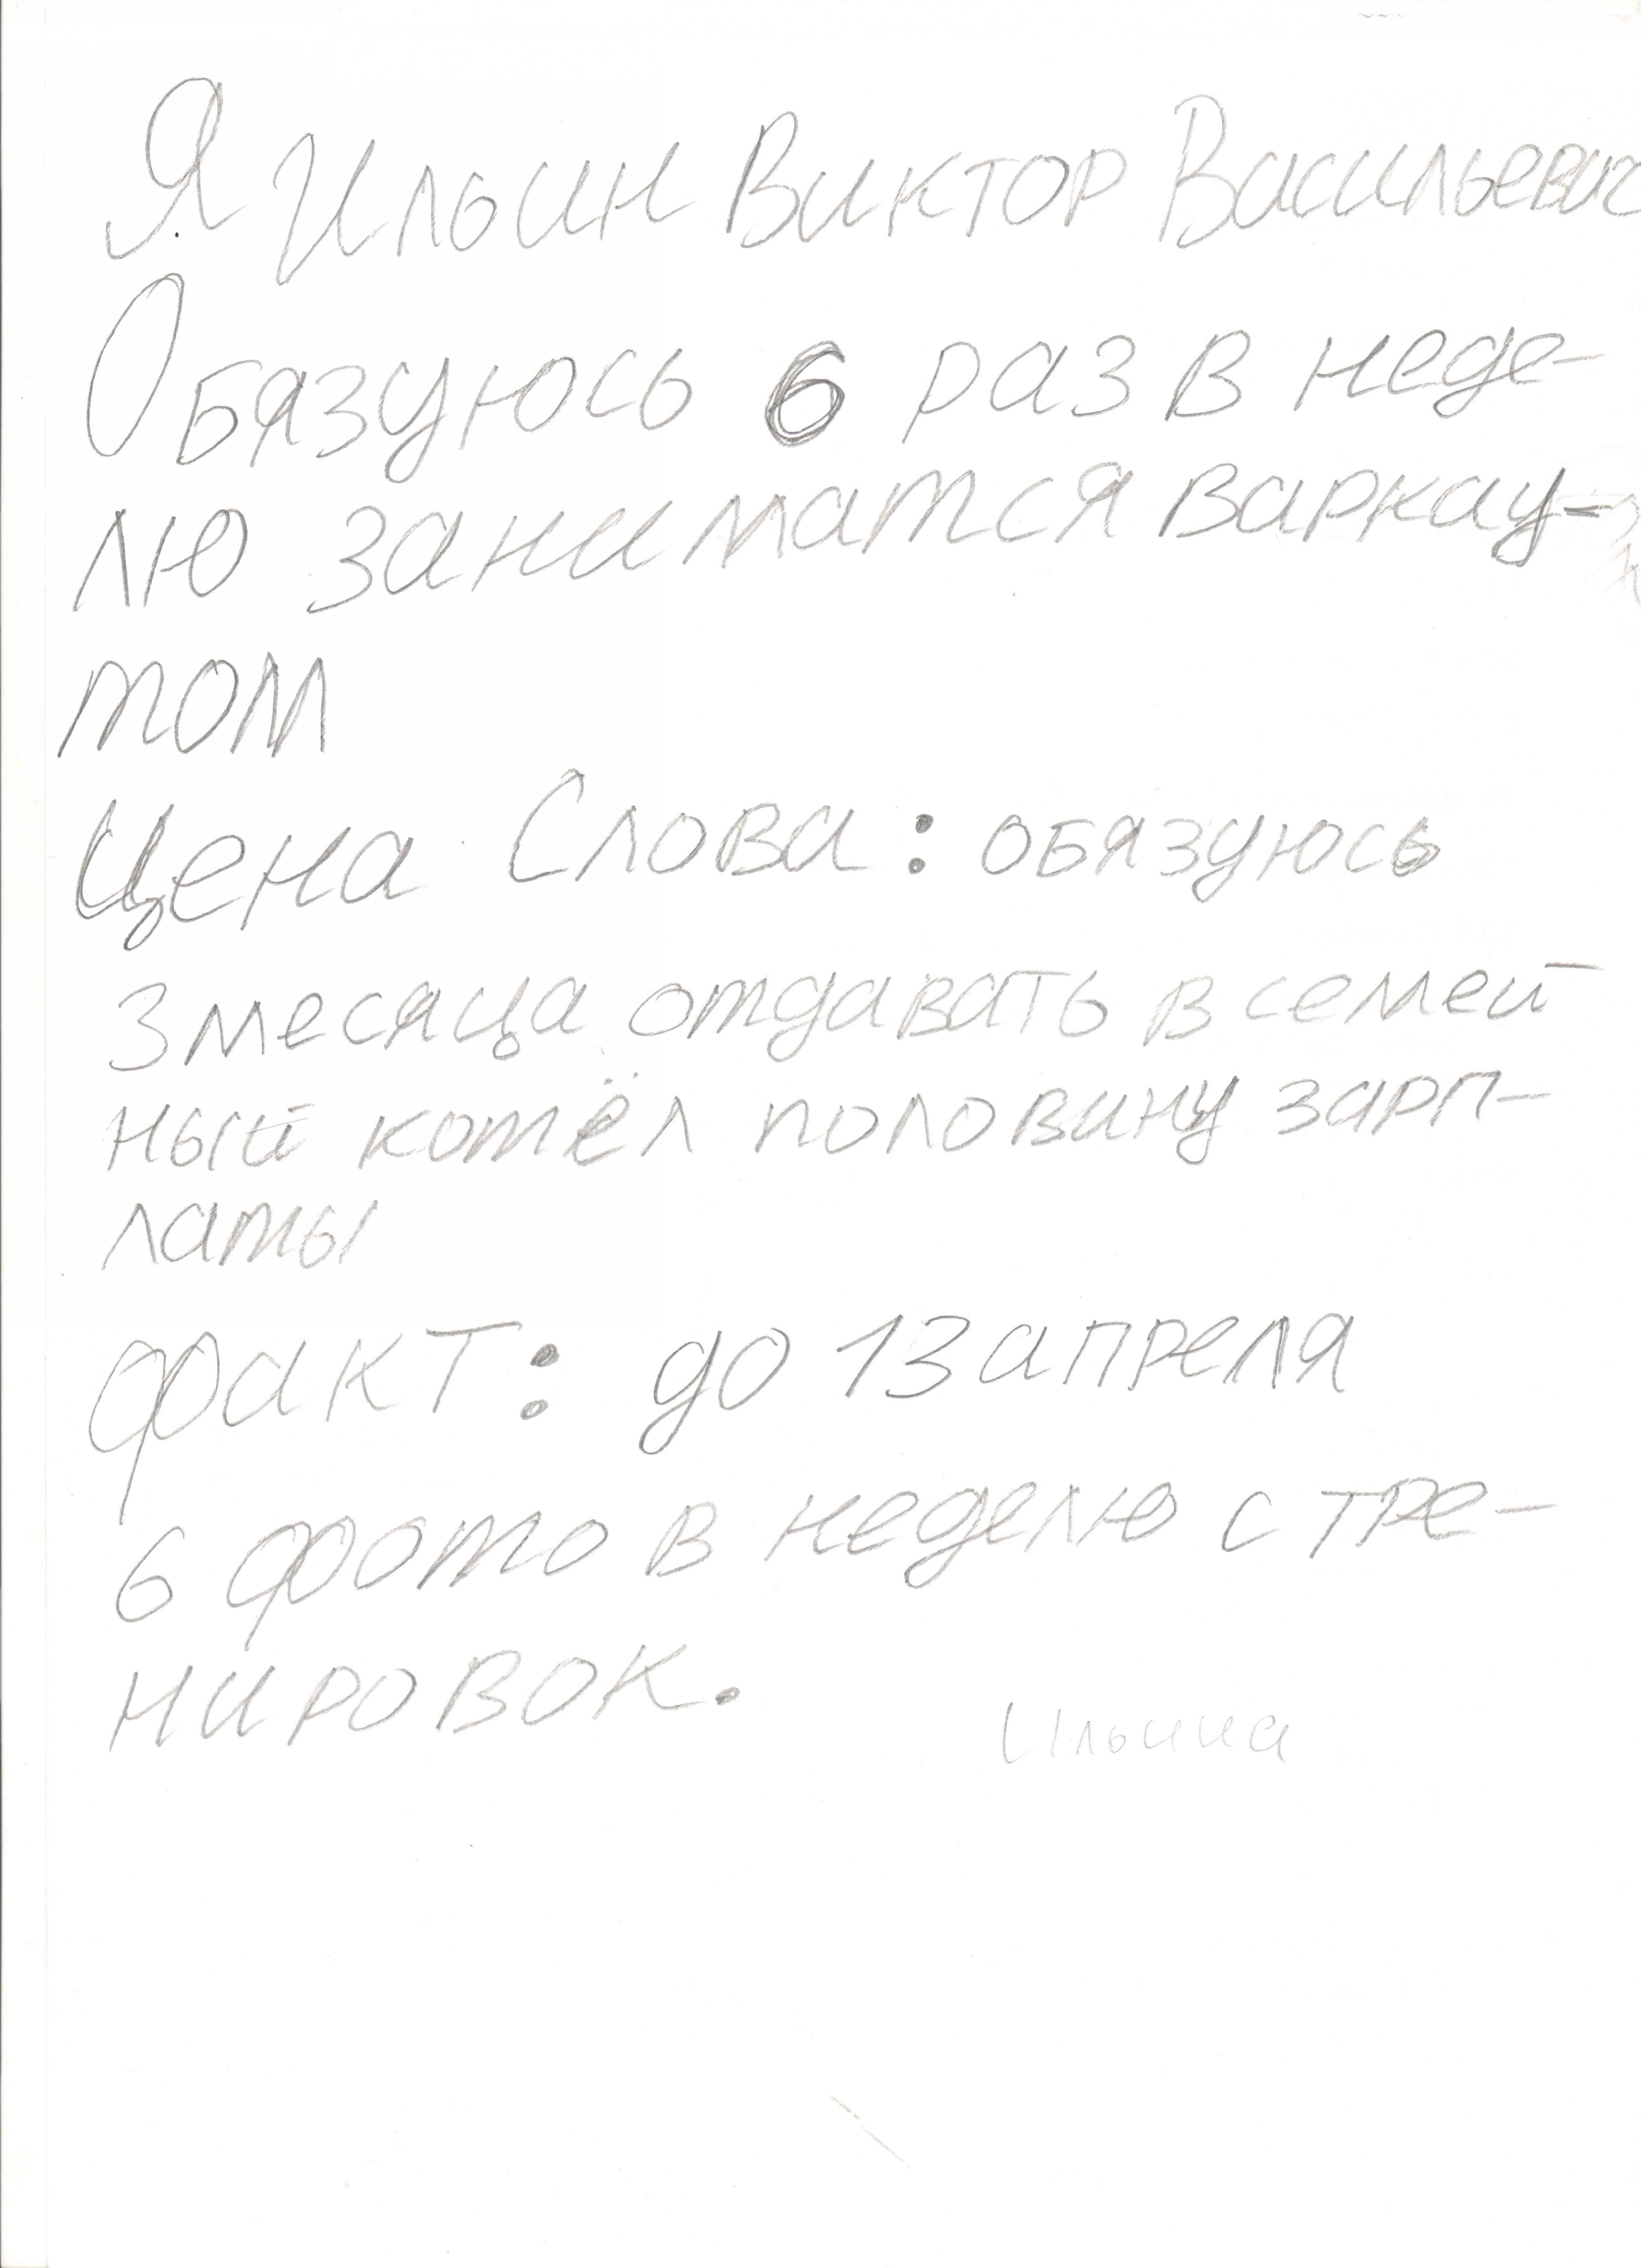 Я Ильин Виктор Васильевич
Обязуюсь 6 раз в неде-
лю заниматся варкау-
том
Цена Слова: обязуюсь
3 месяца отдавать в семей-
ный котёл половину зарп-
латы
факт: до 13 апреля
6 фото в неделю с тре-
нировок.
Ильина